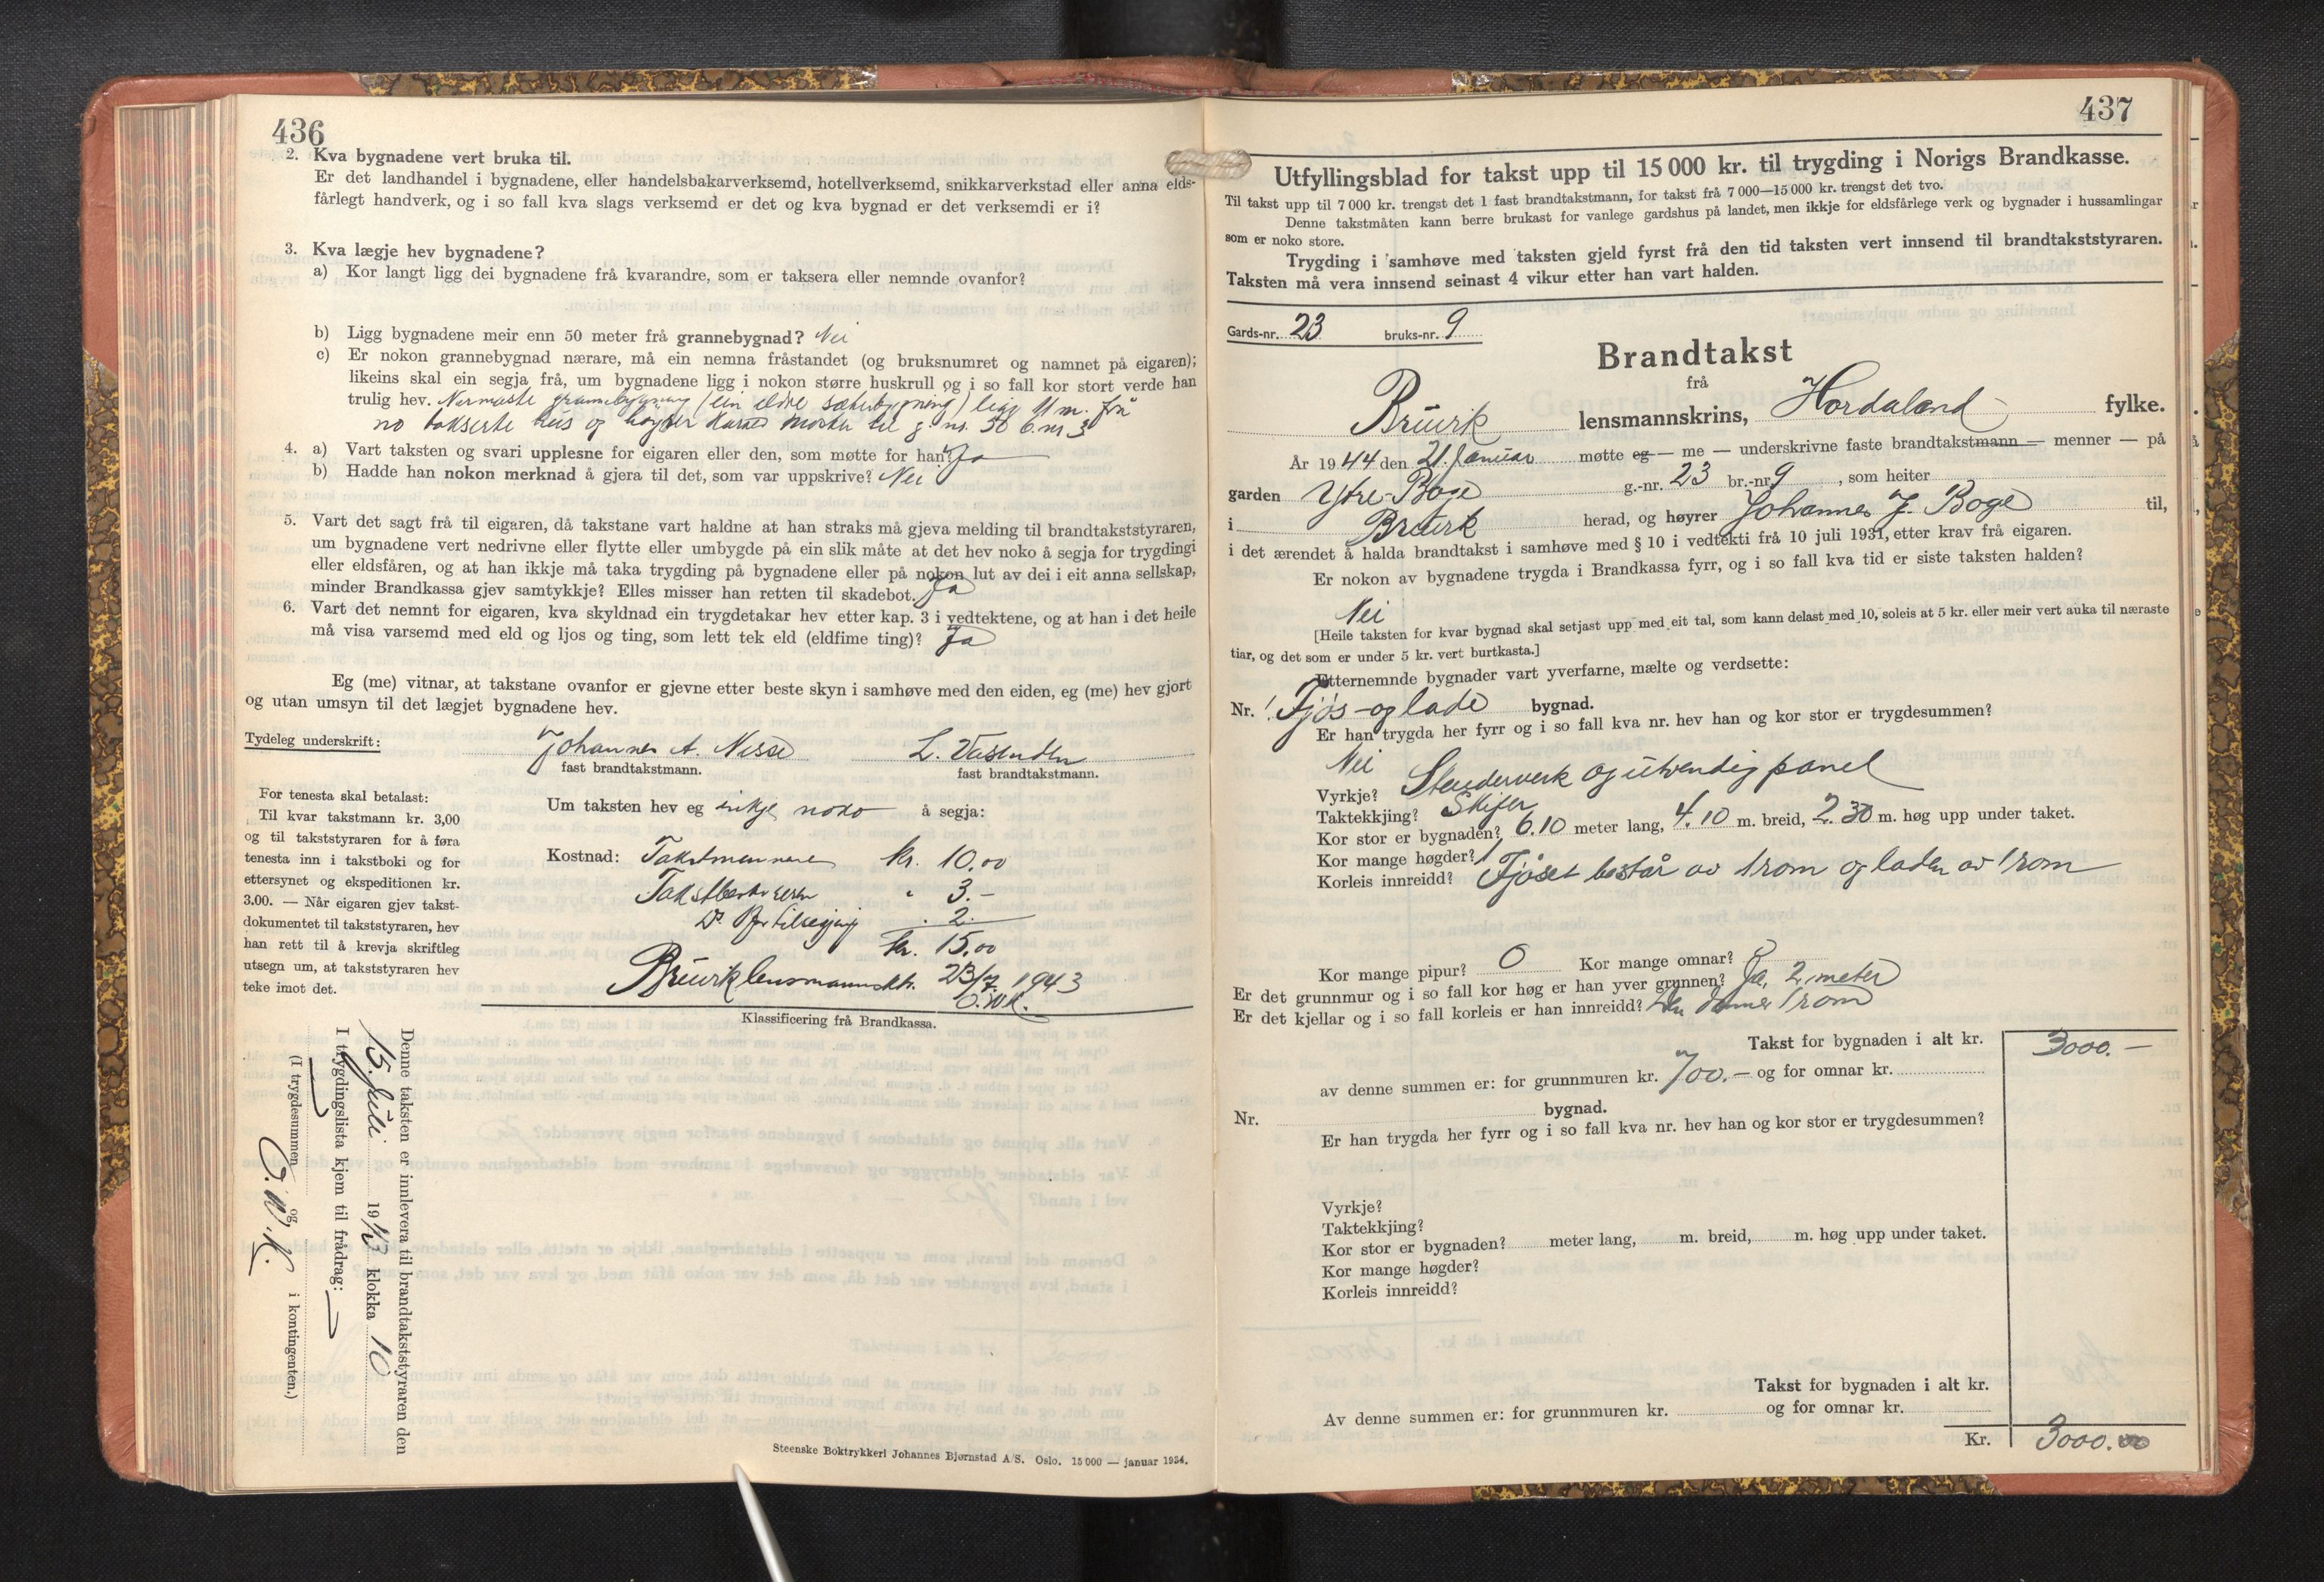 436
2. Kva bygnadene vert bruka til.
Er det landhandel i bygnadene, eller handelsbakarverksemd, hotellverksemd, snikkarverkstad eller anna elds-
fårlegt handverk, og i so fall kva slags verksemd er det og kva bygnad er det verksemdi er i?
3. Kva lægje hev bygnadene?
a) Kor langt ligg dei bygnadene frå kvarandre, som er taksera eller nemnde ovanfor?
b) Ligg bygnadene meir enn 50 meter frå grannebygnad? Nei
c) Er nokon grannebygnad nærare, må ein nemna fråstandet (og bruksnumret og namnet på eigaren);
likeins skal ein segja frå, um bygnadene ligg i nokon større huskrull og i so fall kor stort verde han
trulig hev. Nærmaste grannebygning (ein eldre sæterbygning) ligg 11 m. frå
no takserte hus og høyrer til g.nr. 30 b.nr 3
4. a) Vart taksten og svari upplesne for eigaren eller den, som møtte for han? Ja
b) Hadde han nokon merknad å gjera til det, som var uppskrive? Nei
5. Vart det sagt frå til eigaren, då takstane vart haldne at han straks må gjeva melding til brandtakststyraren,
um bygnadene vert nedrivne eller flytte eller umbygde på ein slik måte at det hev noko å segja for trygdingi
eller eldsfåren, og at han ikkje må taka trygding på bygnadene eller på nokon lut av dei i eit anna sellskap,
minder Brandkassa gjev samtykkje? Elles misser han retten til skadebot. Ja
6. Vart det nemnt for eigaren, kva skyldnad ein trygdetakar hev etter kap. 3 i vedtektene, og at han i det heile
må visa varsemd med eld og ljos og ting, som lett tek eld (eldfime ting)? Ja
Eg (me) vitnar, at takstane ovanfor er gjevne etter beste skyn i samhøve med den eiden, eg (me) hev gjort
og utan umsyn til det lægjet bygnadene hev.
Tydeleg underskrift: Johannes A. Nesse L. Vasenden
fast brandtakstmann. fast brandtakstmann.
For tenesta skal betalast:
Til kvar takstmann kr. 3,00
og til takststyraren for å føra
tenesta inn i takstboki og for
ettersynet og ekspeditionen kr.
3.00. — Når eigaren gjev takst-
dokumentet til takststyraren, hev
han rett til å krevja skriftleg
utsegn um, at takststyraren hev
teke imot det.
Um taksten hev eg inkje noko å segja:
Kostnad: Takstmennene kr. 10.00
Takstbestyreren " 3.-
Do. for tilsegjing " 2.
kr. 15.00
Bruvik lensmannsktr. 23/7 1943
O.W.K.
Klassificering frå Brandkassa.
Denne taksten er innlevera til brandtakststyraren den
15. juli 1943 klokka 10
I trygdingslista kjem til frådrag:
(I trygdesummen og i kontingenten.)
O.W.K.
Steenske Boktrykkeri Johannes Bjørnstad A/S. Oslo. 15 000 — januar 1934.
437
Utfyllingsblad for takst upp til 15 000 kr. til trygding i Norigs Brandkasse.
Til takst upp til 7 000 kr. trengst det 1 fast brandtakstmann, for takst frå 7 000—15 000 kr. trengst det tvo.
Denne takstmåten kann berre brukast for vanlege gardshus på landet, men ikkje for eldsfårlege verk og bygnader i hussamlingar
som er noko store.
Trygding i samhøve med taksten gjeld fyrst frå den tid taksten vert innsend til brandtakststyraren.
Taksten må vera innsend seinast 4 vikur etter han vart halden.
Gards-nr. 23 bruks-nr. 9
Brandtakst
frå
Bruvik lensmannskrins, Hordaland fylke.
År 1944 den 21. Januar møtte eg — me — underskrivne faste brandtakstmann — menner — på
garden Ytre-Boge g.-nr. 23 br.-nr. 9, som heiter
i Bruvik herad, og høyrer Johannes J. Boge til,
i det ærendet å halda brandtakst i samhøve med § 10 i vedtekti frå 10 juli 1931, etter krav frå eigaren.
Er nokon av bygnadene trygda i Brandkassa fyrr, og i so fall kva tid er siste taksten halden?
Nei
[Heile taksten for kvar bygnad skal setjast upp med eit tal, som kann delast med 10, soleis at 5 kr. eller meir vert auka til næraste
tiar, og det som er under 5 kr. vert burtkasta.]
Etternemnde bygnader vart yverfarne, mælte og verdsette:
Nr. 1. Fjøs-og lade bygnad.
Er han trygda her fyrr og i so fall kva nr. hev han og kor stor er trygdesummen?
Nei
Vyrkje? Stenderverk og utvendig panel
Taktekkjing? Skifer
Kor stor er bygnaden? 6.10 meter lang, 4.10 m. breid, 2.30 m. høg upp under taket.
Kor mange høgder? 1
Korleis innreidd? Fjøset består av 1 rom og laden av 1 rom
Kor mange pipur? 0 Kor mange omnar? 0
Er det grunnmur og i so fall kor høg er han yver grunnen? Ja, 2 meter
Er det kjellar og i so fall korleis er han innreidd? 1 rom
Takst for bygnaden i alt kr. 3000.—
av denne summen er: for grunnmuren kr. 700.— og for omnar kr.
Nr. bygnad.
Er han trygda her fyrr og i so fall kva nr. hev han og kor stor er trygdesummen?
Vyrkje?
Taktekkjing?
Kor stor er bygnaden? meter lang, m. breid, m. høg upp under taket.
Kor mange høgder?
Korleis innreidd?
Takst for bygnaden i alt kr.
Av denne summen er: for grunnmuren kr. og for omnar kr.
Kr. 3000.00